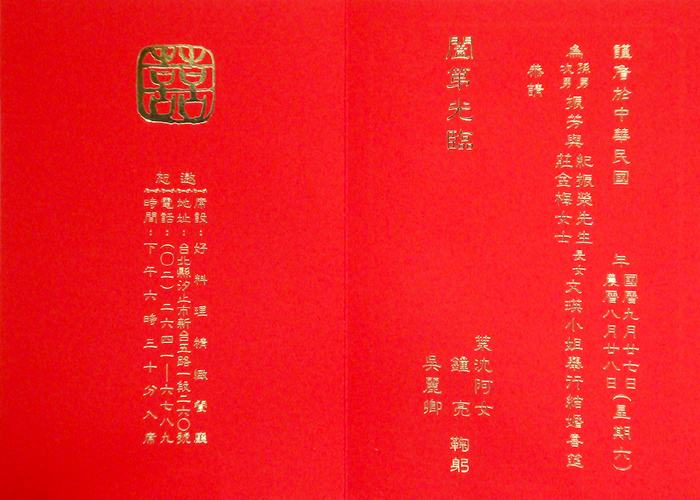 謹詹於中華民國 年 國曆九月廿七日 農曆八月廿八日 (星期六)
為 孫男 次男 振芳與 紀振榮先生 莊金梅女士 長女文瑛小姐舉行結婚喜筵
恭請
闔第光臨
沈阿女
鐘亮 鞠躬
吳麗卿
囍
邀起
席設:好料理精緻餐廳
地址:台北縣汐止市新台五路一段二六〇號
電話:(〇二)二六四一—六七八九
時間:下午六時三十分入席